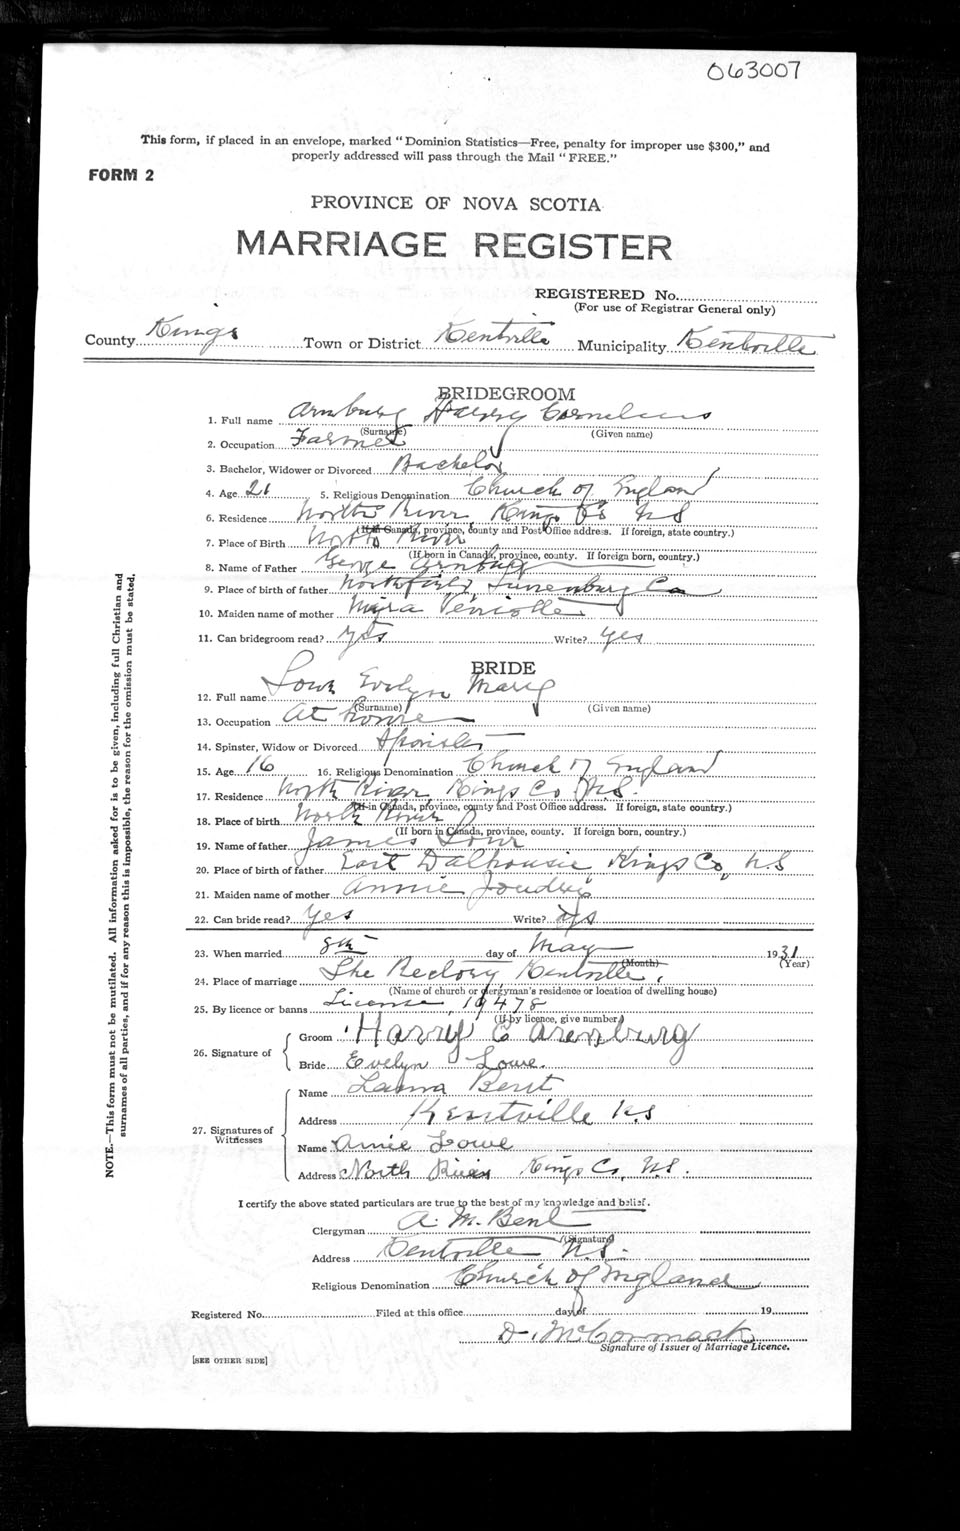 063007
This form, if placed in an envelope, marked "Dominion Statistics—Free, penalty for improper use $300," and
properly addressed will pass through the Mail "FREE."
FORM 2
PROVINCE OF NOVA SCOTIA
MARRIAGE REGISTER
REGISTERED No.
(For use of Registrar General only)
County Kings Town or District Kentville Municipality Kentville
BRIDEGROOM
1. Full name Arnburg Harry Cornelius
(Surname) (Given name)
2. Occupation Farmer
3. Bachelor, Widower or Divorced Bachelor
4. Age 21 5. Religious Denomination Church of England
6. Residence North River Kings Co NS
(If in Canada, province, county and Post Office address. If foreign, state country.)
7. Place of Birth North River
(If born in Canada, province, county. If foreign born, country.)
8. Name of Father George Arnburg
9. Place of birth of father Northfield, Lunenburg Co
10. Maiden name of mother
11. Can bridegroom read? yes Write? yes
BRIDE
12. Full name Lowe Evelyn Mary
(Surname) (Given name)
13. Occupation At home
14. Spinster, Widow or Divorced Spinster
15. Age 16 16. Religious Denomination Church of England
17. Residence North River Kings Co N.S.
(If in Canada, province, county and Post Office address. If foreign, state country.)
18. Place of birth North River
(If born in Canada, province, county. If foreign born, country.)
19. Name of father James Lowe
20. Place of birth of father East Dalhousie, Kings Co, N.S
21. Maiden name of mother Annie
22. Can bride read? Yes Write? yes
23. When married 8th day of May 1931
(Month) (Year)
24. Place of marriage The Rectory Kentville,
(Name of church or clergyman's residence or location of dwelling house)
25. By licence or banns License, 19478
(If by licence, give number)
26. Signature of
Groom Harry C Arenburg
Bride Evelyn Lowe.
27. Signatures of Witnesses
Name Laura Bent
Address Kentville N.S
Name Annie Lowe
Address North River Kings Co, N.S.
I certify the above stated particulars are true to the best of my knowledge and belief.
Clergyman A. M. Bent
(Signature)
Address Kentville N.S.
Religious Denomination Church of England
Registered No. Filed at this office day of 19
D. McCormack
Signature of Issuer of Marriage Licence.
[SEE OTHER SIDE]
NOTE.—This form must not be mutilated. All information asked for is to be given, including full Christian and
surnames of all parties, and if for any reason this is impossible, the reason for the omission must be stated.